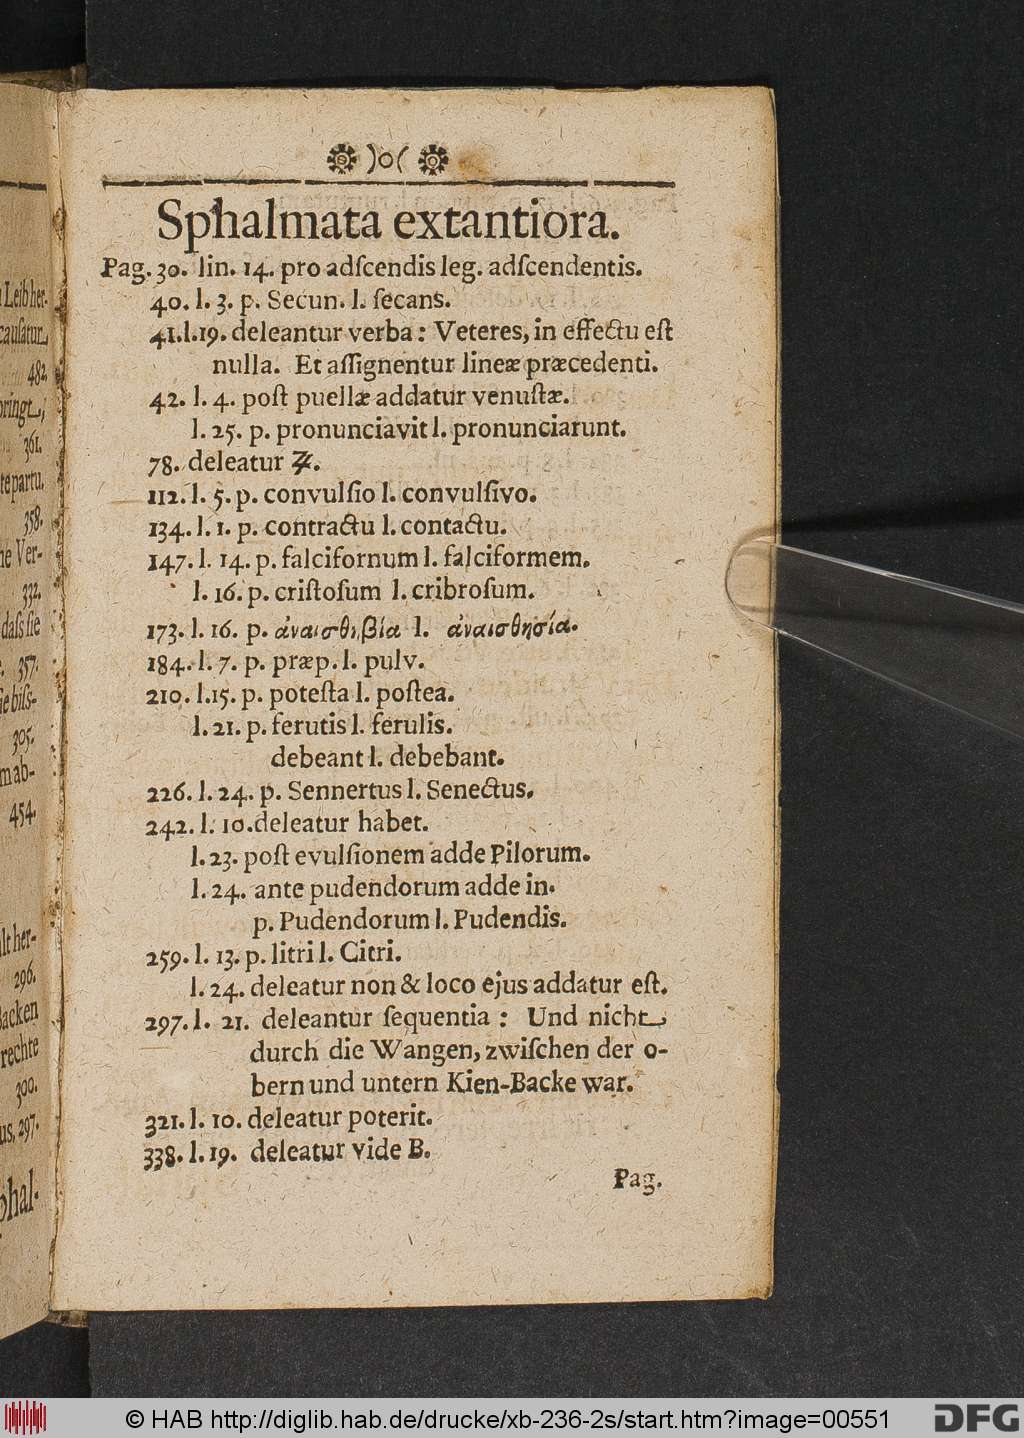 Leib her-
causatur
482.
bringt,
361.
te partu.
358.
ne Ver-
332.
daſs ſie
357.
ie biſs-
305.
m ab-
454.
lt her-
296.
Backen
rechte
300.
us. 297.
phal-
)o(
Sphalmata extantiora.
Pag. 30. lin. 14. pro adſcendis leg. adſcendentis.
40. l. 3. p. Secun. l. ſecans.
41. l. 19. deleantur verba : Veteres, in effectu eſt
nulla. Et aſſignentur lineæ præcedenti.
42. l. 4. poſt puellæ addatur venuſtæ.
l. 25. p. pronunciavit l. pronunciarunt.
78. deleatur ♃.
112. l. 5. p. convulſio l. convulſivo.
134. l. 1. p. contractu l. contactu.
147. l. 14. p. falcifornum l. falciformem.
l. 16. p. criſtoſum l. cribroſum.
173. l. 16. p. ἀναισθιβία l. ἀναισθησία.
184. l. 7. p. præp. l. pulv.
210. l. 15. p. poteſta l. poſtea.
l. 21. p. ferutis l. ferulis.
debeant l. debebant.
226. l. 24. p. Sennertus l. Senectus.
242. l. 10. deleatur habet.
l. 23. poſt evulſionem adde Pilorum.
l. 24. ante pudendorum adde in.
p. Pudendorum l. Pudendis.
259. l. 13. p. litri l. Citri.
l. 24. deleatur non & loco ejus addatur eſt.
297. l. 21. deleantur ſequentia : Und nicht
durch die Wangen, zwiſchen der o-
bern und untern Kien-Backe war.
321. l. 10. deleatur poterit.
338. l. 19. deleatur vide B.
Pag.
© HAB http://diglib.hab.de/drucke/xb-236-2s/start.htm?image=00551
DFG